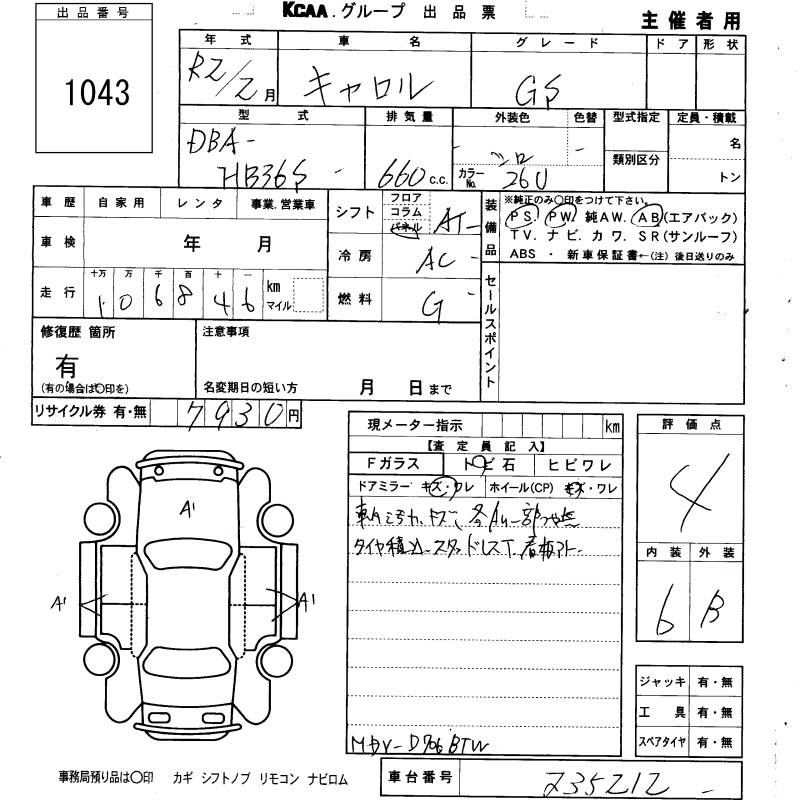 出品番号 KCAA.グループ 出品票 主催者用
1043
年式 車名 グレード ドア 形状
R2/2月 キャロル GS
型式 排気量 外装色 色替 型式指定 定員・積載
DBA- シロ - 名
HB36S 660c.c. カラーNo. 26U 類別区分 トン
車歴 自家用 レンタ 事業、営業車
シフト フロア コラム パネル AT
装備品 ※純正のみ〇印をつけて下さい。
PS. PW. 純AW. AB(エアバック)
TV. ナビ. カワ. SR(サンルーフ)
ABS ・ 新車保証書←(注) 後日送りのみ
車検 年 月 冷房 AC
走行 十万 万 千 百 十 一 km マイル 燃料 G
1 0 6 8 4 6
セールスポイント
修復歴 箇所 注意事項
有
(有の場合は〇印を) 名変期日の短い方 月 日まで
リサイクル券 有・無 7930円
現メーター指示 km 評価点
【査定員記入】
Fガラス トビ石 ヒビワレ
ドアミラー キズ・ワレ ホイール(CP) キズ・ワレ
4
A1
タイヤ積込 スタッドレスT.
内装 外装
6 B
A1 A1
ジャッキ 有・無
工具 有・無
スペアタイヤ 有・無
MDV-D706BTW
事務局預り品は〇印 カギ シフトノブ リモコン ナビロム
車台番号 235212